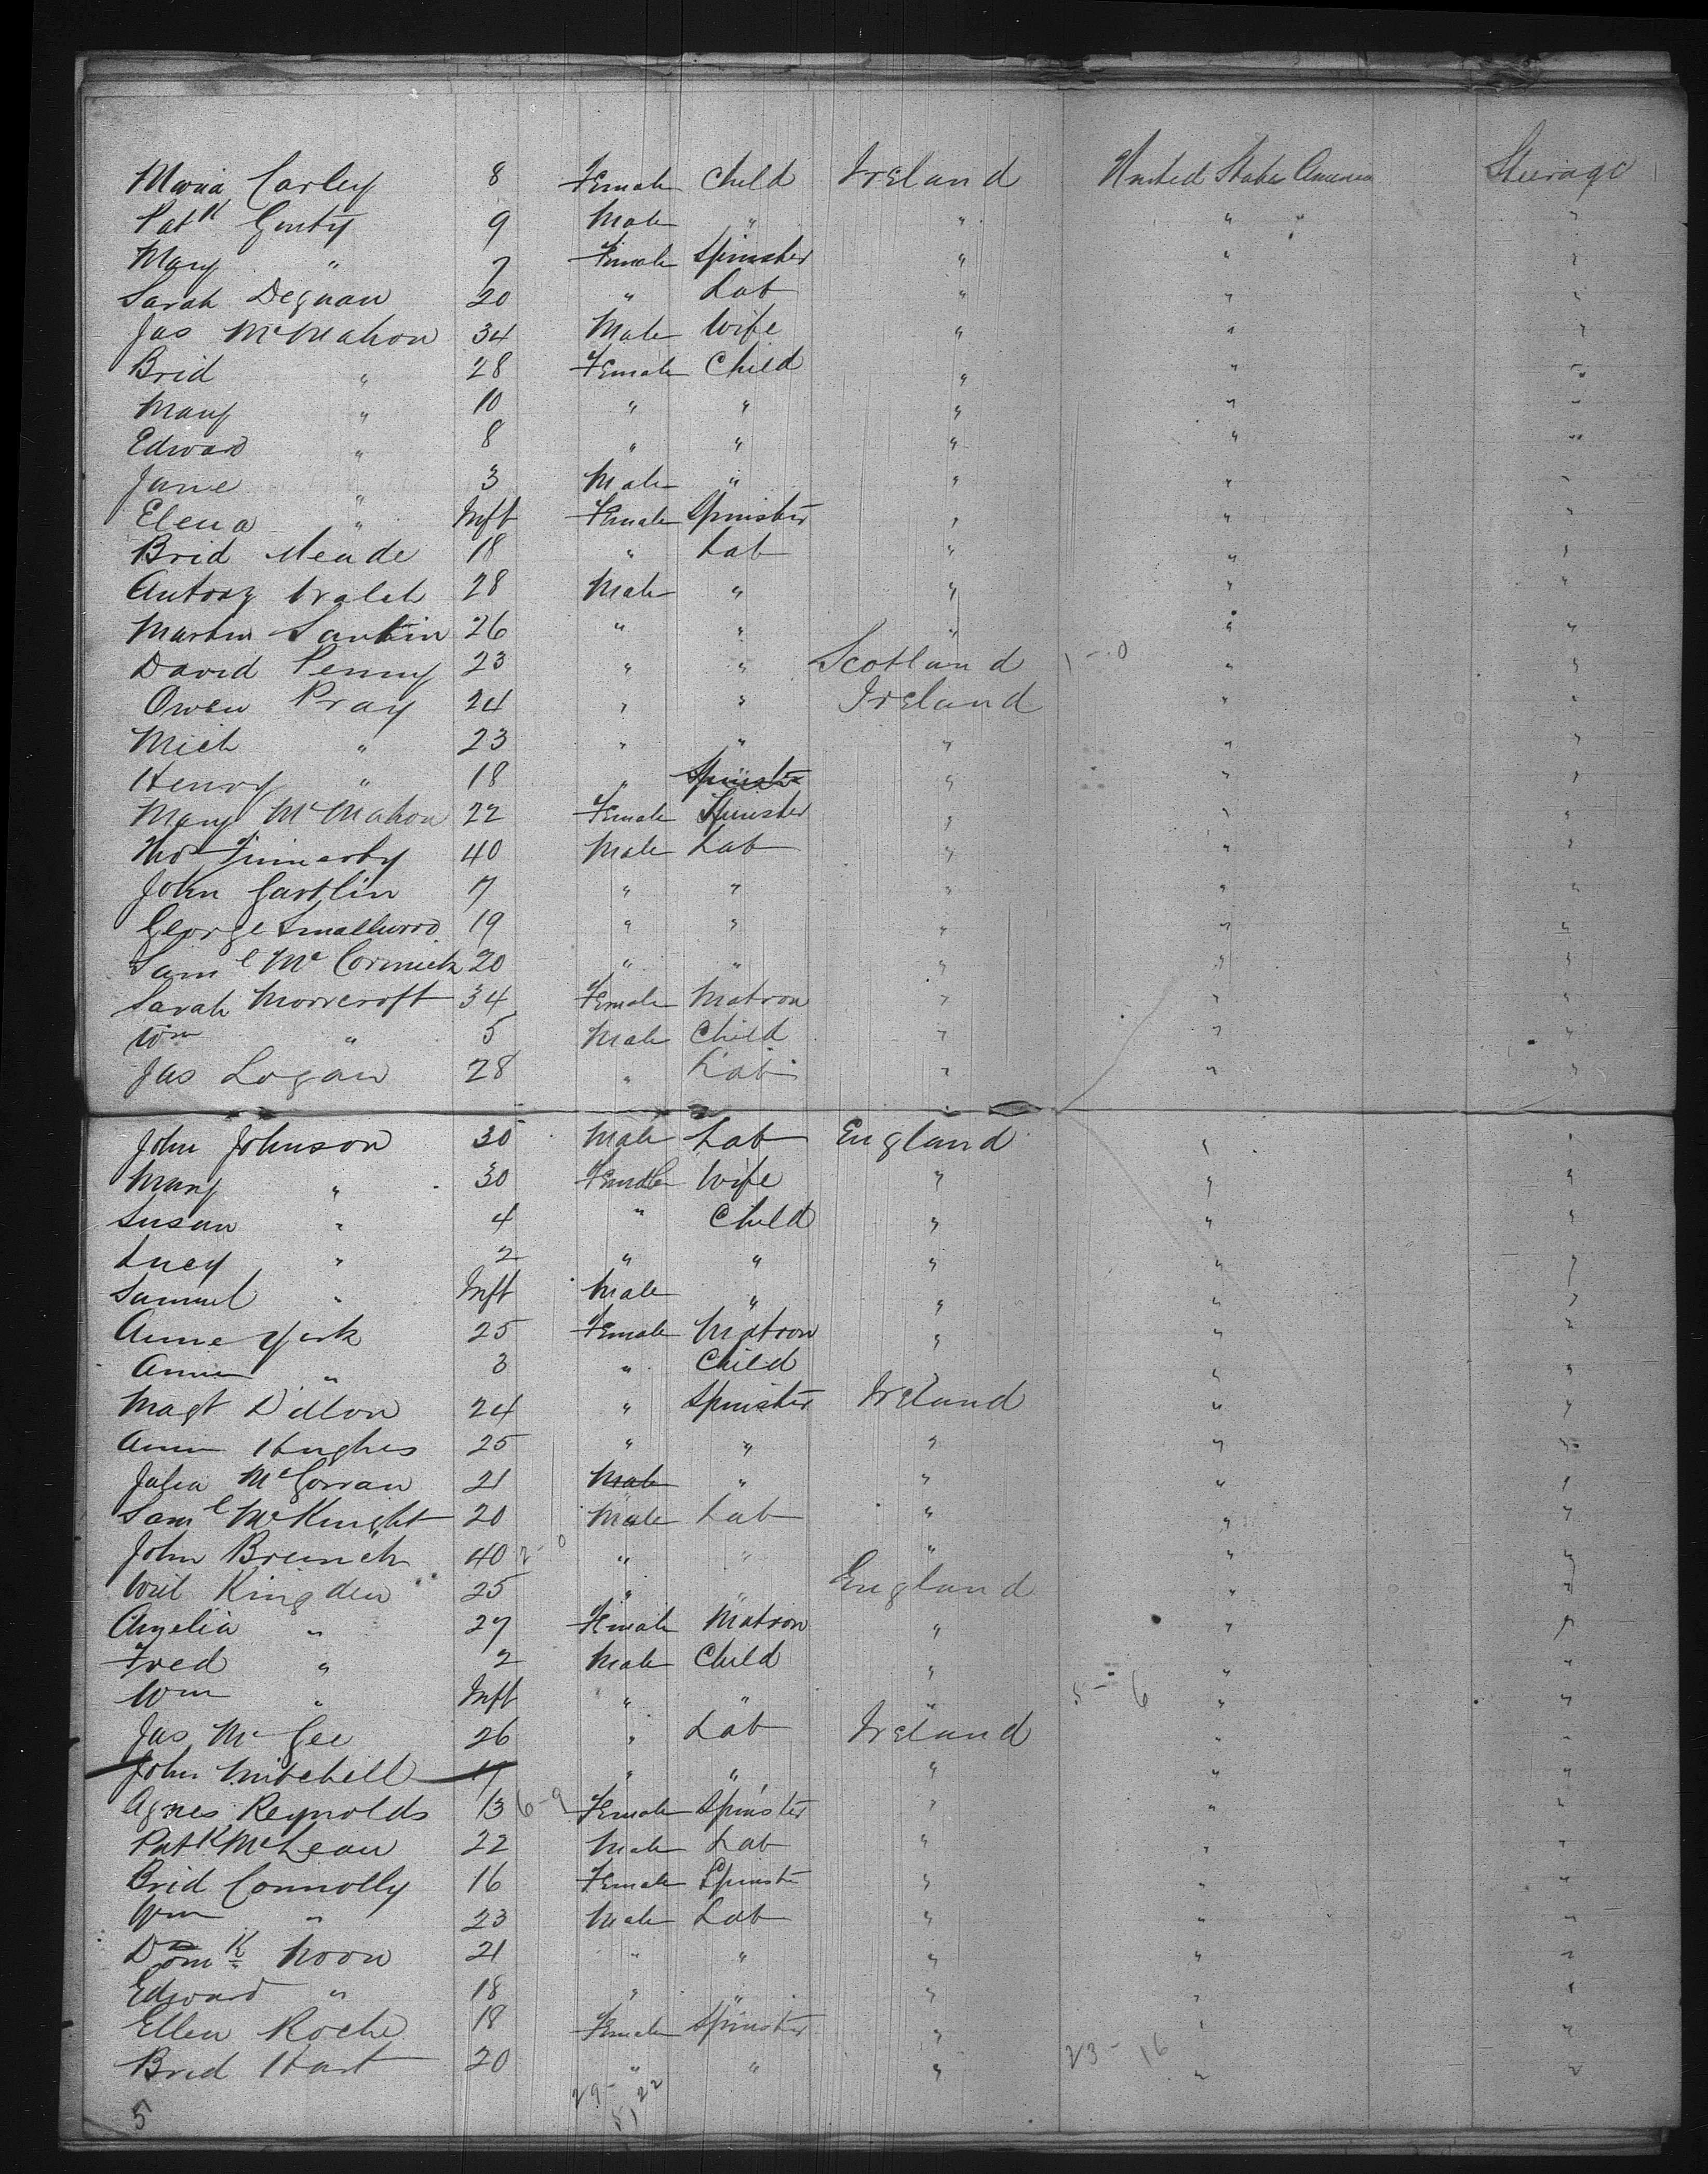 Maria Carley 8 Female Child Ireland United States America Steerage
Patk Ginty 9 Male " " " " "
Mary " 7 Female Spinster " " "
Sarah Degnan 20 " Lab " " "
Jas McMahon 34 Male Wife " " "
Brid " 28 Female Child " " "
Mary " 10 " " " " "
Edward " 8 " " " " "
Jane " 3 Male " " " "
Elena " Inft Female Spinster " " "
Brid Meade 18 " Lab " " "
Antony Walsh 28 Male " " " "
Martin 26 " " " " "
David Penny 23 " " Scotland 1 - 0 " "
Owen Pray 24 " " Ireland " "
Mich " 23 " " " " "
Henry " 18 " Spinster " " "
Mary McMahon 22 Female Spinster " " "
Thos 40 Male Lab " " "
John Gartlin 7 " " " " "
George Smallwood 19 " " " " "
Saml McCormick 20 " " " " "
Sarah Moorcroft 34 Female Matron " " "
Wm " 5 Male Child " " "
Jas Logan 28 " Lab " " "
John Johnson 30 Male Lab England " "
Mary " 30 Female Wife " " "
Susan " 4 " Child " " "
Lucy " 2 " " " " "
Samuel " Inft Male " " " "
Anne York 25 Female Matron " " "
Annie " 3 " Child " "
Magt Dillon 24 " Spinster Ireland " "
Ann Hughes 25 " " " " "
Julia McGorran 21 Male " " " "
Saml McKnight 20 Male Lab " " "
John 40 2 - 0 " " " " "
Will Kingden 25 " " England " "
Amelia " 27 Female Matron " " "
Fred " 2 Male Child " " "
Wm " Inft " " " 5 - 6 " "
Jas McGee 26 " Lab Ireland " "
John Mitchell 19 " " " " "
Agnes Reynolds 13 6-9 Female Spinster " " "
Patk McLean 22 Male Lab " " "
Brid Connolly 16 Female Spinst " " "
Wm " 23 Male Lab " " "
Domk Noon 21 " " " " "
Edward " 18 " " " " "
Ellen Roche 18 Female Spinster " " "
Brid Hart 20 " " " 23 - 16 " "
29 - 22
5 51